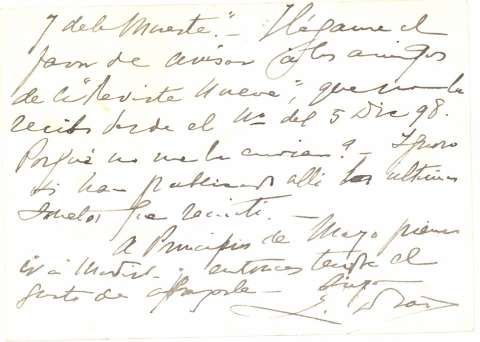 y de la Muerte." – Hágame el
favor de avisar a los amigos
de la "Revista Nueva", que no la
recibo desde el Nº del 5 Dic 98.
Porqué no me la envian? – Ignoro
si han publicado allí los últimos
sonetos que remití. –
A Principios de Mayo pienso
ir a Madrid – entonces tendré el
gusto de